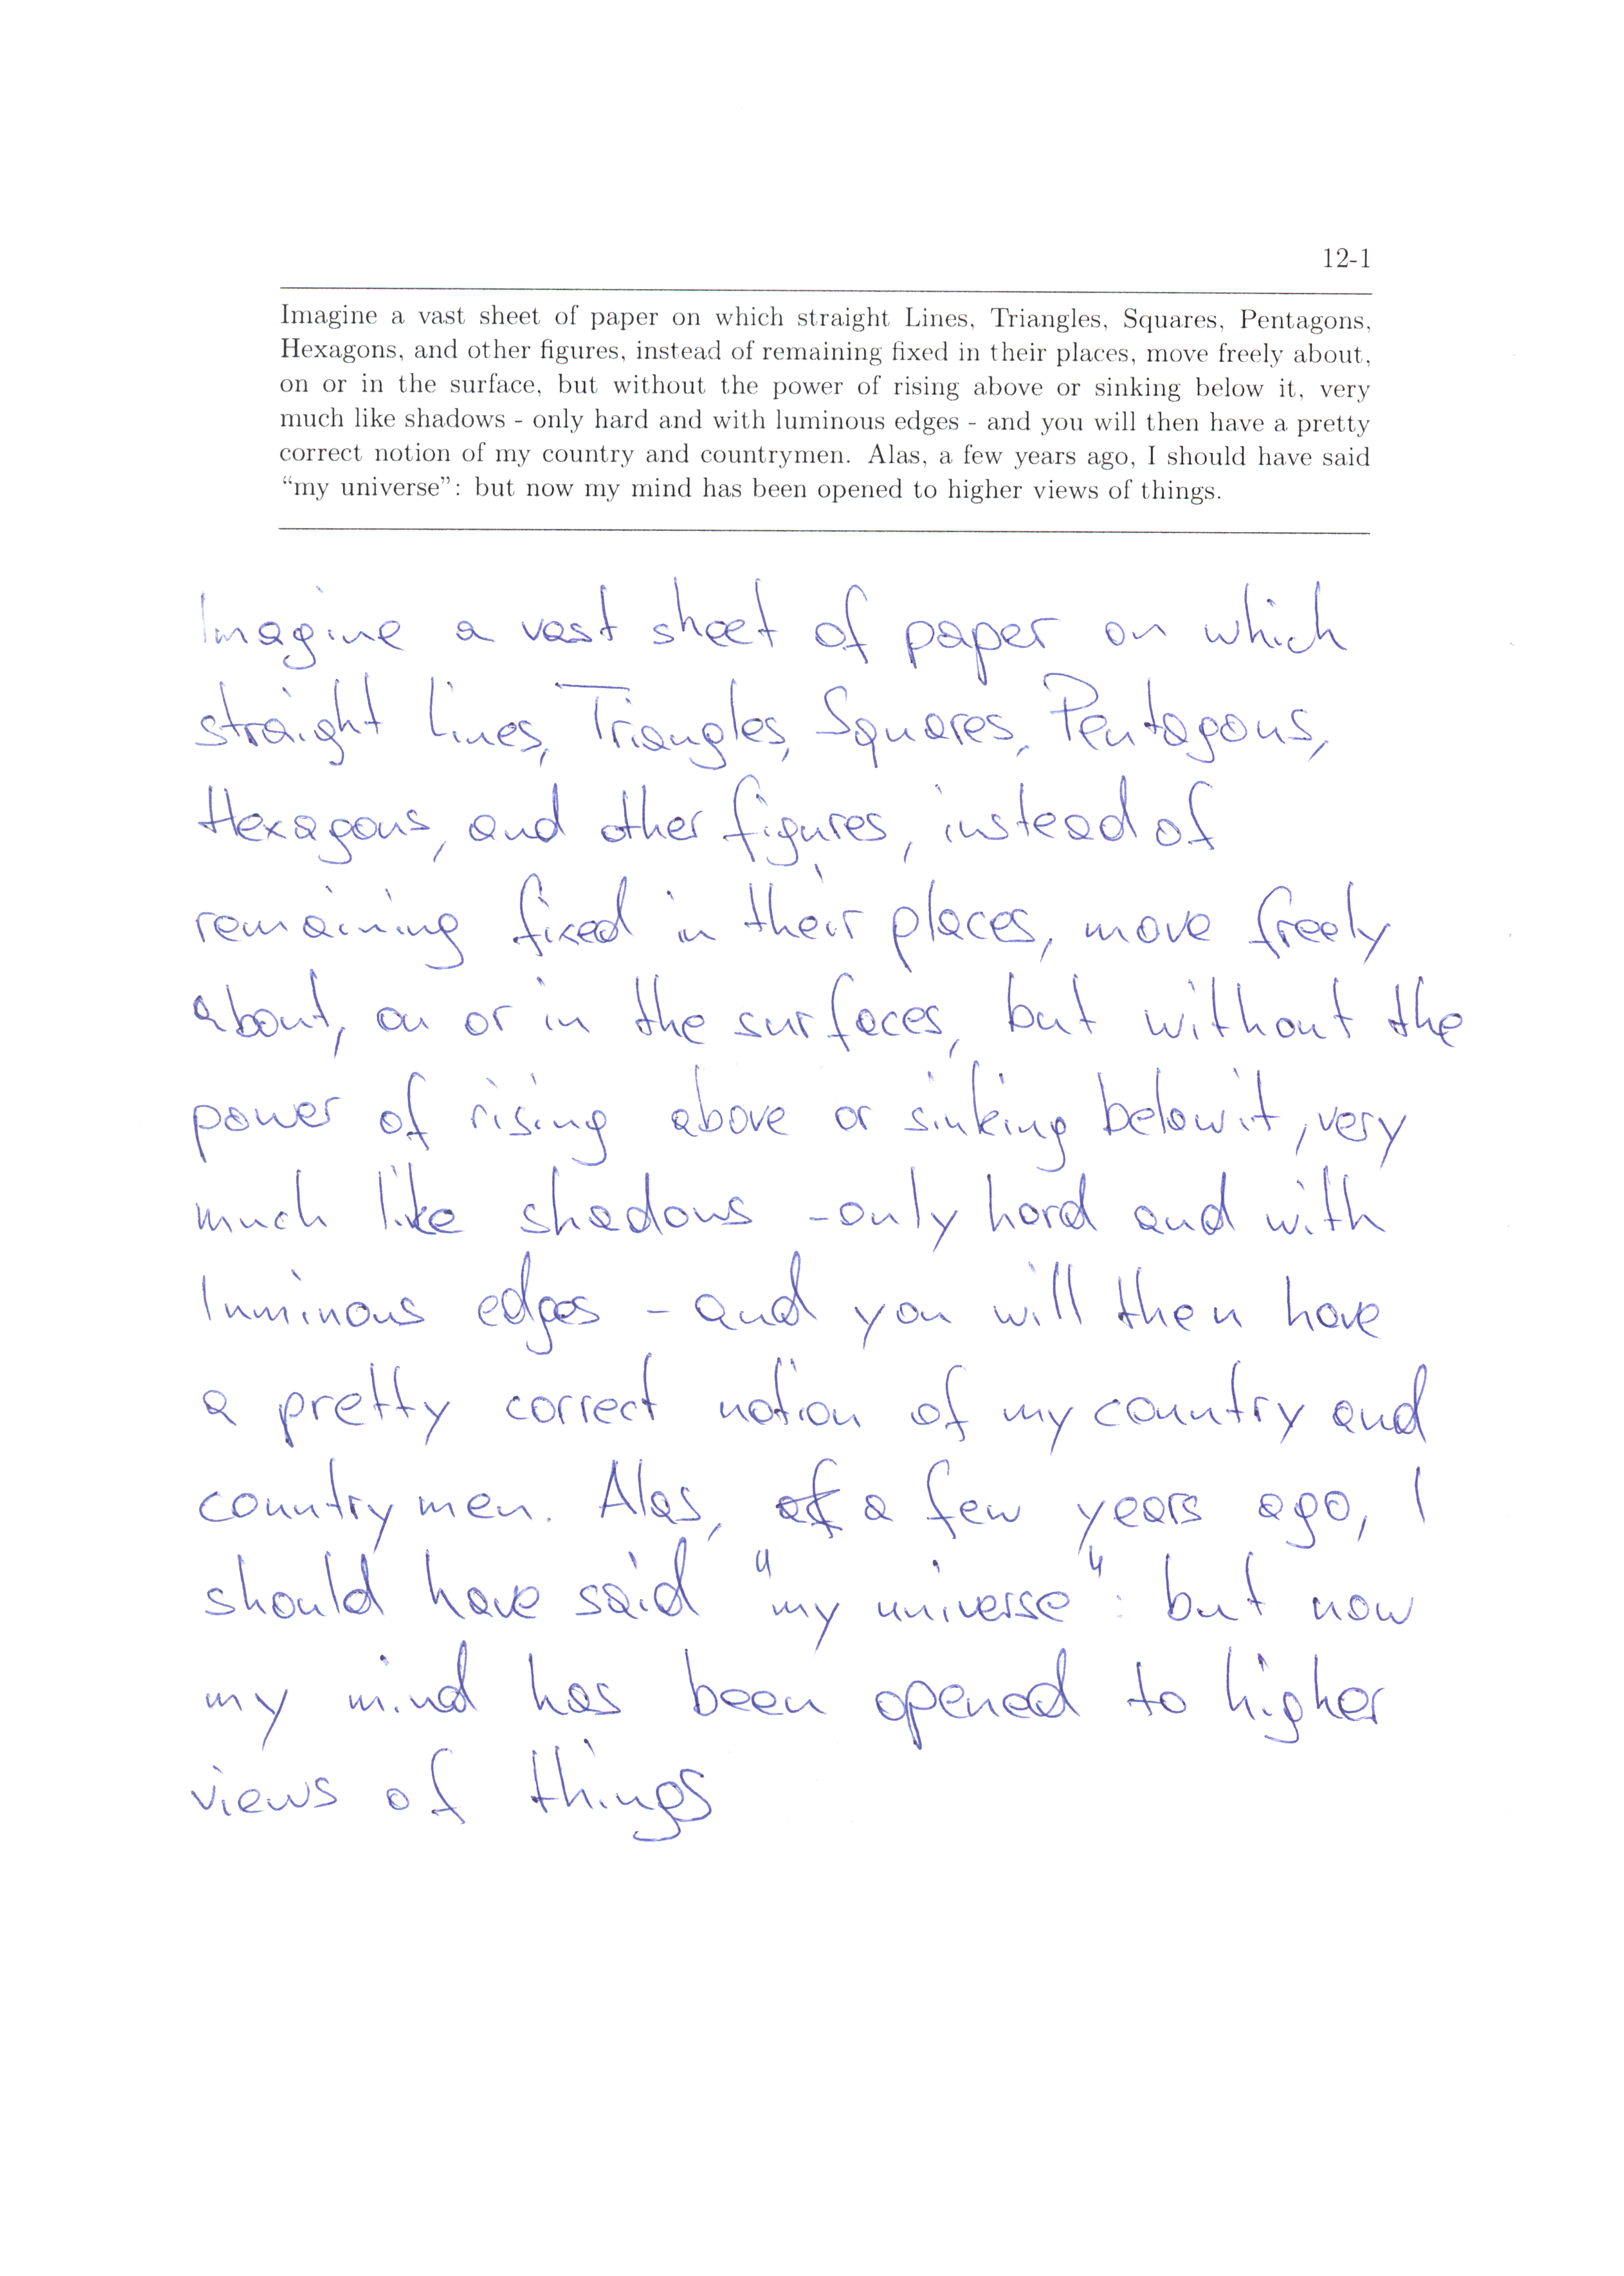 12-1
Imagine a vast sheet of paper on which straight Lines, Triangles, Squares, Pentagons,
Hexagons, and other figures, instead of remaining fixed in their places, move freely about,
on or in the surface, but without the power of rising above or sinking below it, very
much like shadows - only hard and with luminous edges - and you will then have a pretty
correct notion of my country and countrymen. Alas, a few years ago, I should have said
“my universe”: but now my mind has been opened to higher views of things.
Imagine a vast sheet of paper on which
straight lines, Triangles, Squares, Pentagons,
Hexagons, and other figures, instead of
remaining fixed in their places, move freely
about, on or in the surfaces, but without the
power of rising above or sinking below it, very
much like shadows - only hard and with
luminous edges - and you will then have
a pretty correct notion of my country and
countrymen. Alas, a few years ago, I
should have said "my universe": but now
my mind has been opened to higher
views of things